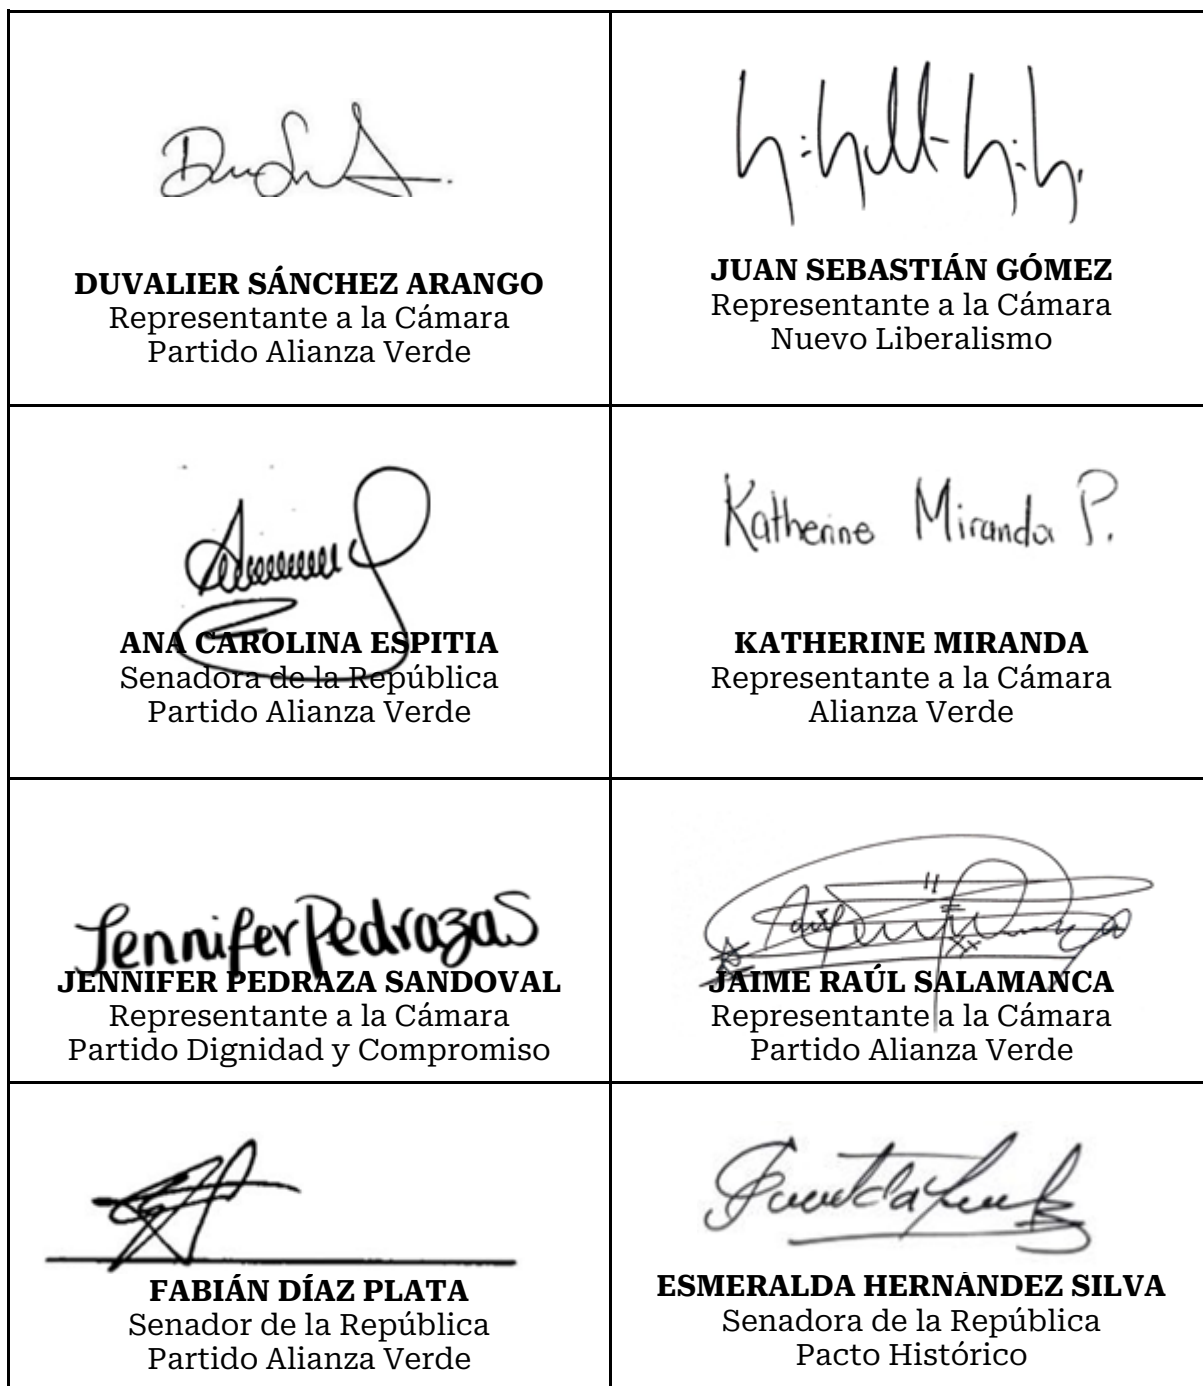 DUVALIER SÁNCHEZ ARANGO
Representante a la Cámara
Partido Alianza Verde
JUAN SEBASTIÁN GÓMEZ
Representante a la Cámara
Nuevo Liberalismo
ANA CAROLINA ESPITIA
Senadora de la República
Partido Alianza Verde
Katherine Miranda P.
KATHERINE MIRANDA
Representante a la Cámara
Alianza Verde
Jennifer Pedraza S
JENNIFER PEDRAZA SANDOVAL
Representante a la Cámara
Partido Dignidad y Compromiso
JAIME RAÚL SALAMANCA
Representante a la Cámara
Partido Alianza Verde
FABIÁN DÍAZ PLATA
Senador de la República
Partido Alianza Verde
ESMERALDA HERNÁNDEZ SILVA
Senadora de la República
Pacto Histórico